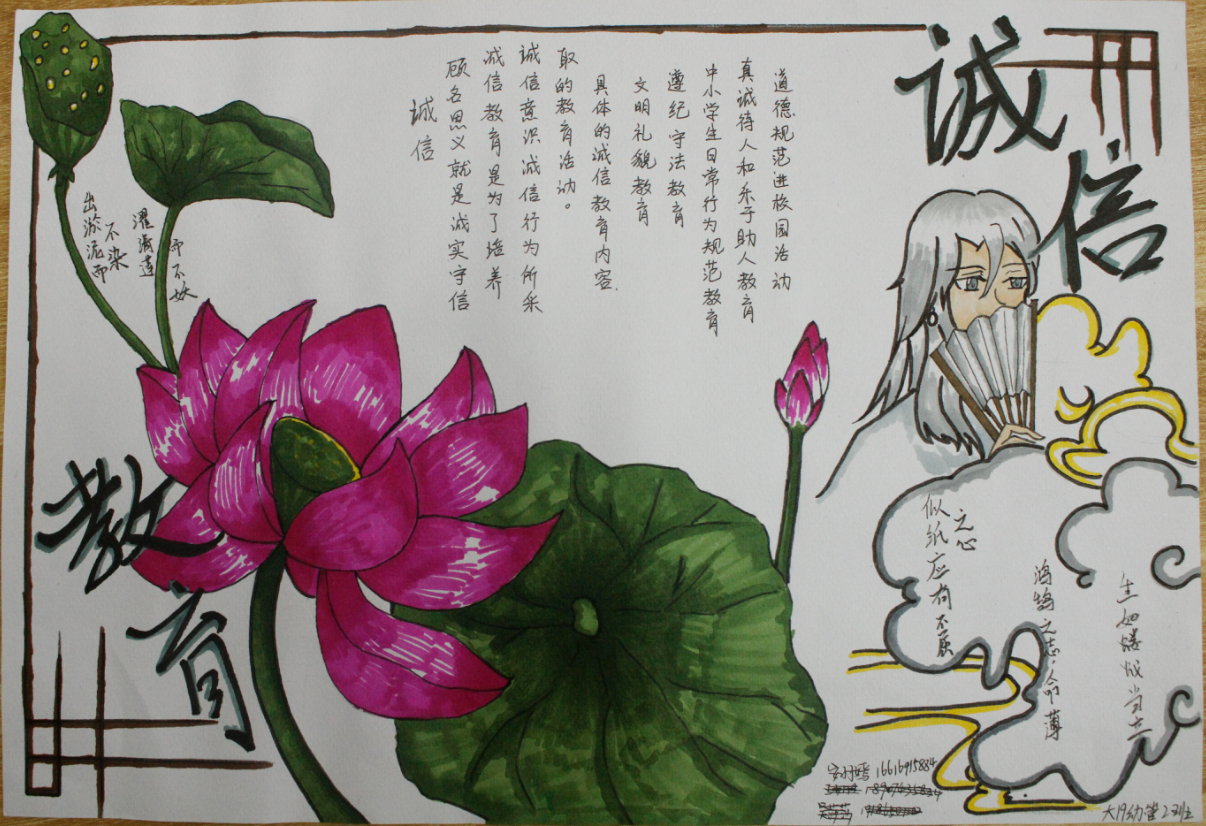 诚信
教育
诚信
顾名思义就是诚实守信
诚信教育是为了培养
诚信意识诚信行为所采
取的教育活动。
具体的诚信教育内容
文明礼貌教育
遵纪守法教育
中小学生日常行为规范教育
真诚待人和乐于助人教育
道德规范进校园活动
出淤泥而
不染
濯清莲
而不妖
生如蝼蚁当立
鸿鹄之志，命薄
似纸应有不屈
之心
16616915834
大19幼管2班